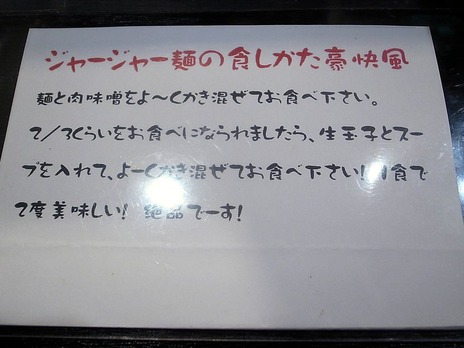 ジャージャー麺の食しかた豪快風
麺と肉味噌をよ〜くかき混ぜてお食べ下さい。
2/3くらいをお食べになられましたら、生玉子とスー
プを入れて、よーくかき混ぜてお食べ下さい!1食で
2度美味しい! 絶品でーす!